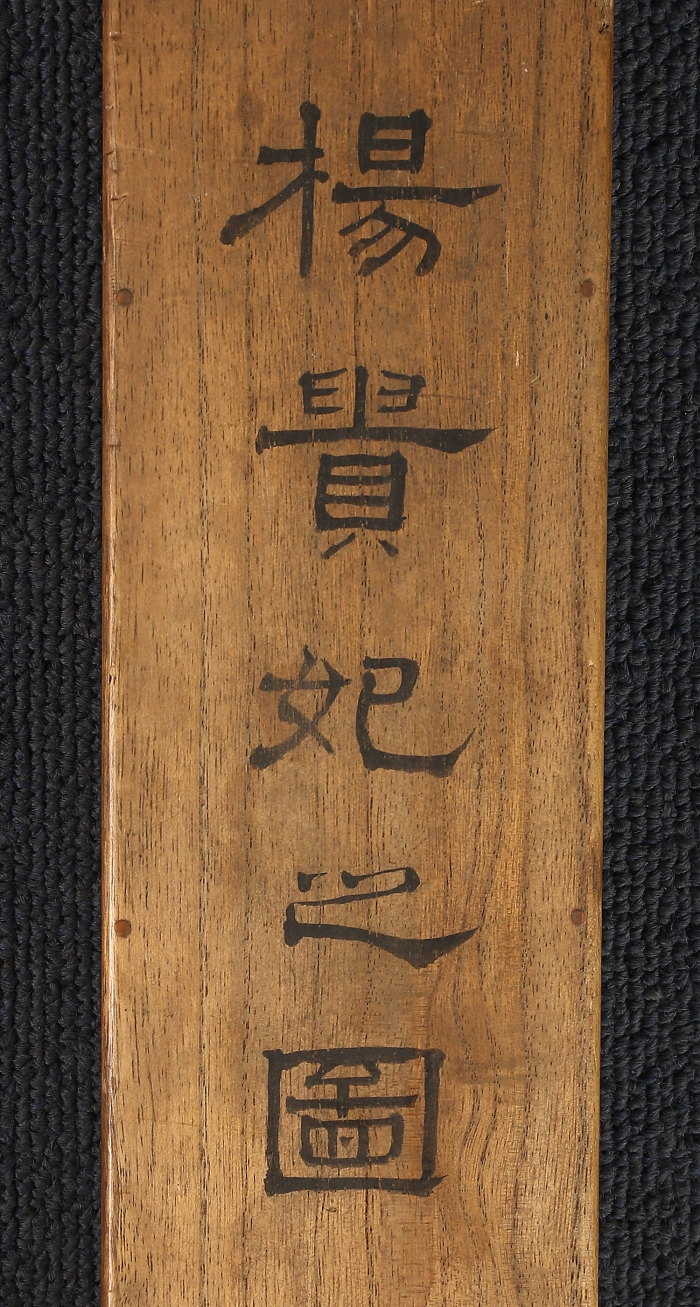 楊貴妃之圖